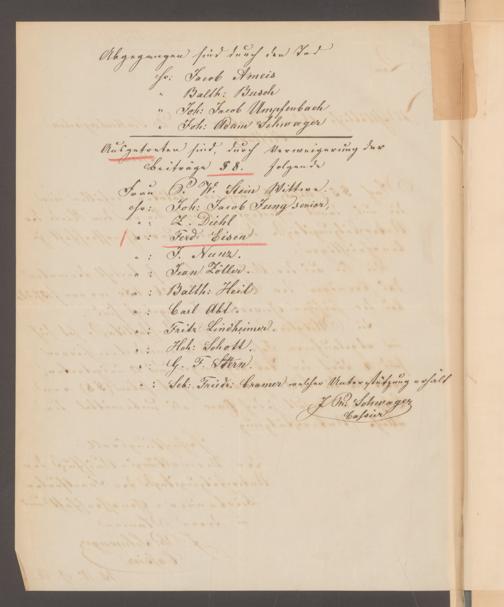 Abgegangen sind durch den Tod
Hr: Jacob Ameis
" Balth: Busch
" Joh: Jacob Umpfenbach
" Joh: Adam Schwager
Ausgetreten sind, durch Verweigerung der
Beiträge § 8. folgende
Frau P. W. Stein Wittwe.
Hr: Joh: Jacob Jung senior.
" : Z. Diehl
" : Ferd: Eisen
" : J. Nunz.
" : Jean Zöller.
" : Balth: Heil
" : Carl Abt.
" : Fritz Lindheimer.
" : Hch: Schott.
" : G. F. Stern.
" : Seb: Friedr: Cramer welcher Unterstützung erhält
J. Schwager
Cassier